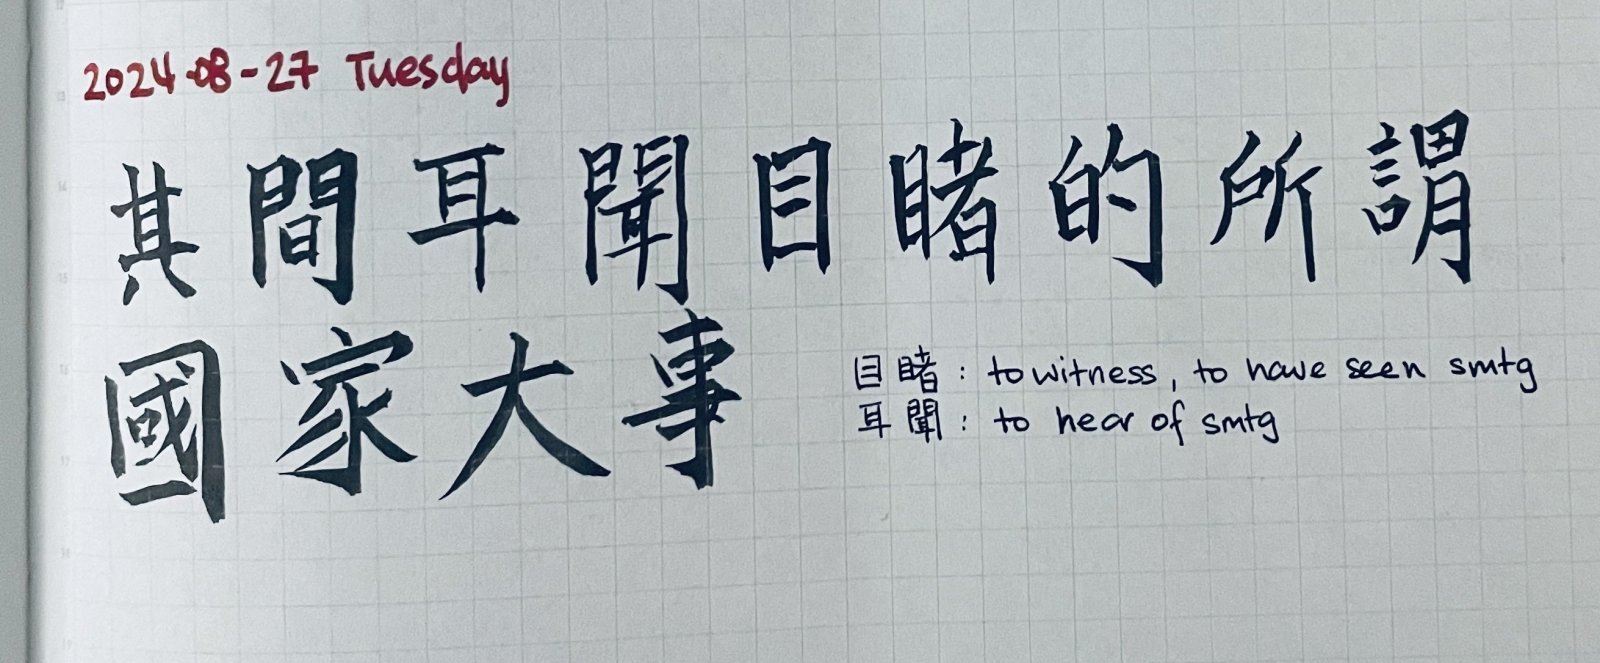 2024-08-27 Tuesday
其間耳聞目睹的所謂
國家大事
目睹: to witness, to have seen smtg
耳聞: to hear of smtg